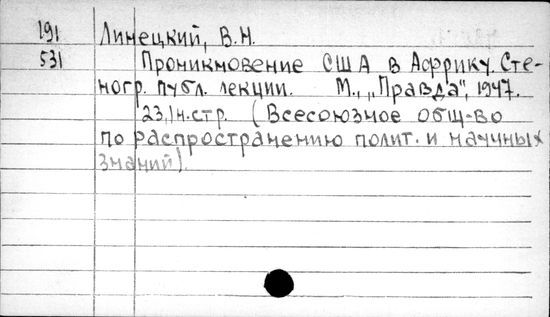 191 Линецкий, В.Н.
531 Проникновение США в Африку. Сте-
ногр. публ. лекции. М., „Правда", 1947.
23,1н.стр. (Всесоюзное общ-во
по распространению полит. и научных
знаний).